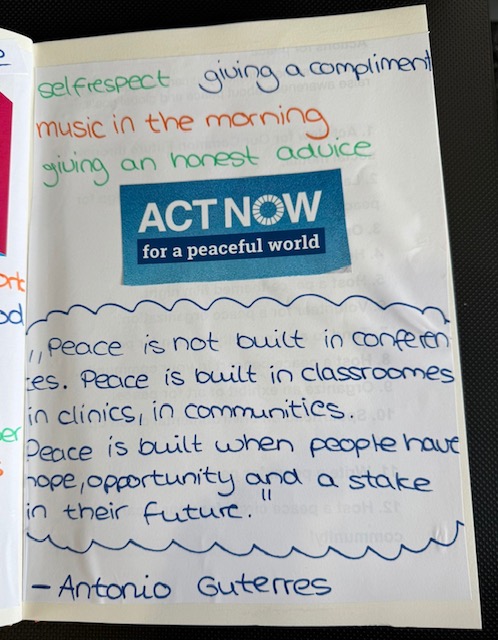 selfrespect giving a compliment
music in the morning
giving an honest advice
ACT NOW
for a peaceful world
„Peace is not built in conferen
ces. Peace is built in classroomes
in clinics, in communities.
Peace is built when people have
hope, opportunity and a stake
in their future."
- Antonio Guterres